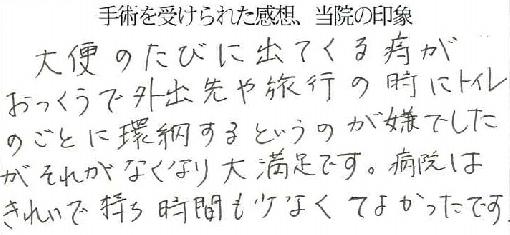 手術を受けられた感想、当院の印象
大便のたびに出てくる痔が
おっくうで外出先や旅行の時にトイレ
のごとに環納するというのが嫌でした
がそれがなくなり大満足です。病院は
きれいで持ち時間も少なくてよかったです。